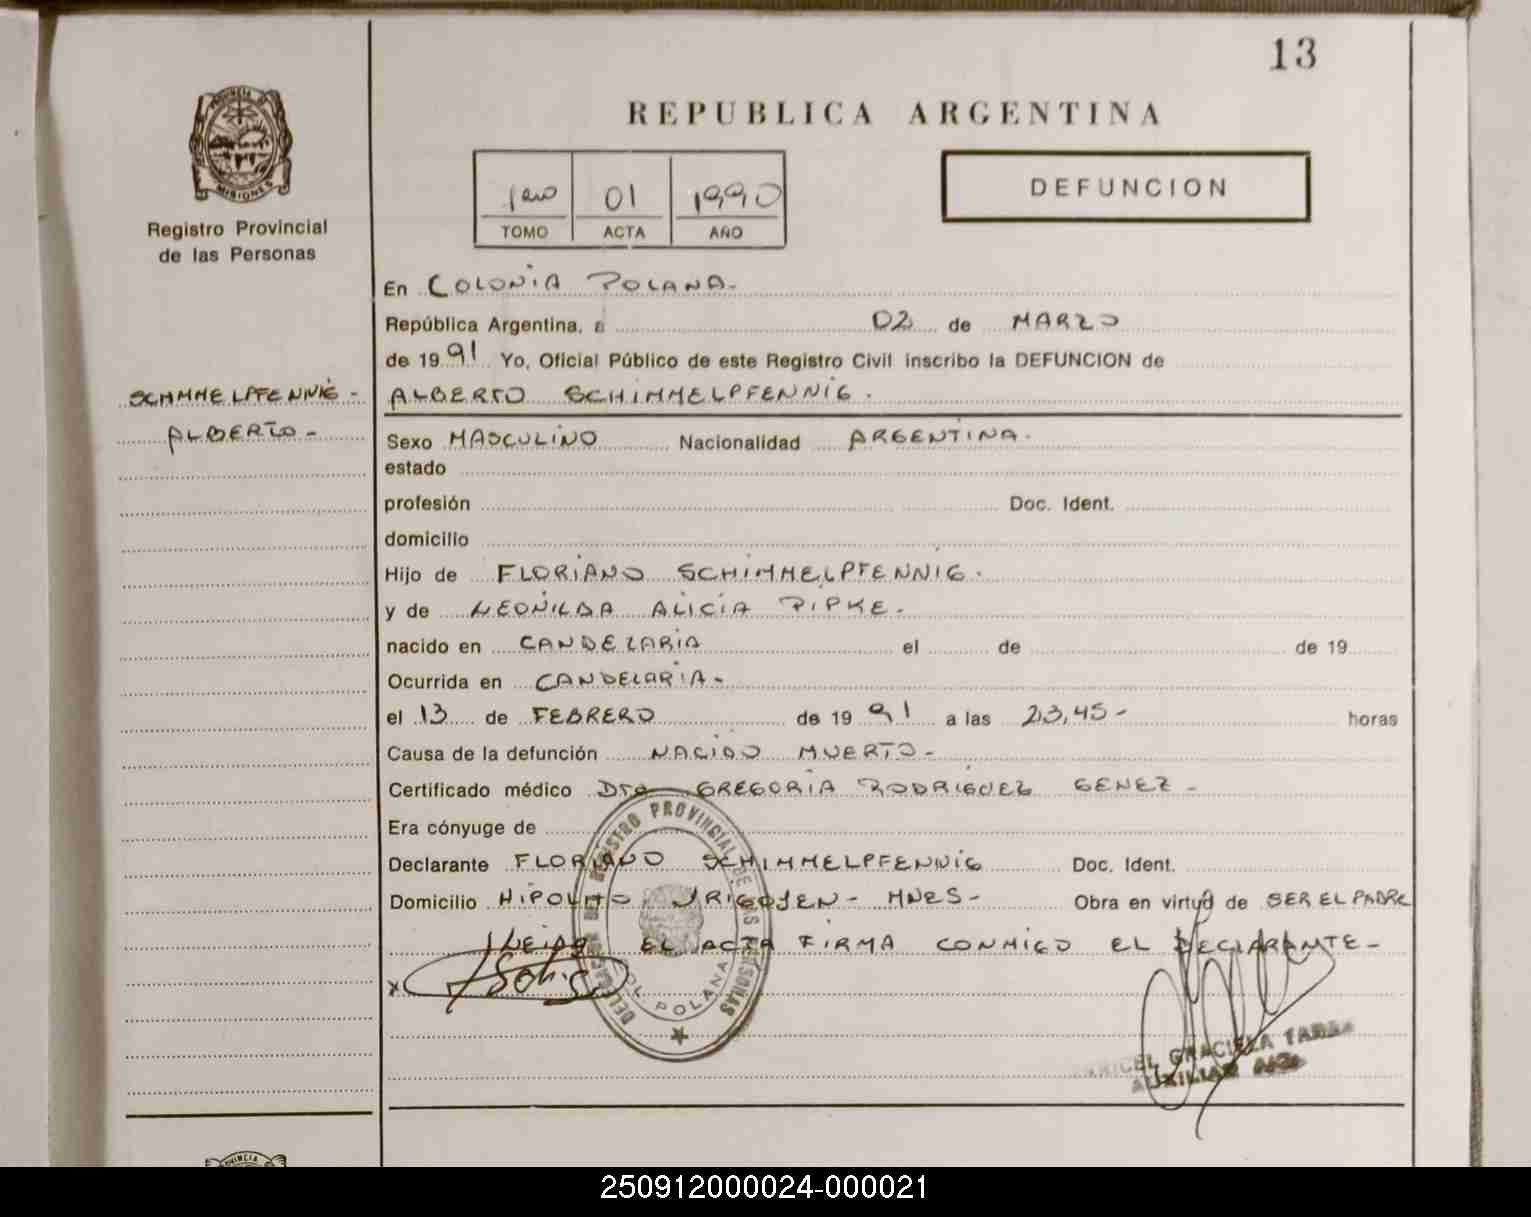 13
REPUBLICA ARGENTINA
PROVINCIA D
MISIONES
Registro Provincial
de las Personas
1ero 01 1990
TOMO ACTA AÑO
DEFUNCION
En COLONIA POLANA-
República Argentina, a 02 de MARZO
de 1991 Yo, Oficial Público de este Registro Civil inscribo la DEFUNCION de
SCHIMMELPFENNIG -
ALBERTO SCHIMMELPFENNIG.
ALBERTO -
Sexo MASCULINO Nacionalidad ARGENTINA.
estado
profesión Doc. Ident.
domicilio
Hijo de FLORIANO SCHIMMELPFENNIG.
y de LEONILDA ALICIA PIPKE.
nacido en CANDELARIA el de de 19
Ocurrida en CANDELARIA-
el 13 de FEBRERO de 1991 a las 23,45- horas
Causa de la defunción NACIDO MUERTO-
Certificado médico Dra GREGORIA RODRIGUEZ GENEZ-
Era cónyuge de
Declarante FLORIANO SCHIMMELPFENNIG Doc. Ident.
Domicilio HIPOLITO YRIGOJEN- MNES- Obra en virtud de SER EL PADRE
LNEIDA EL ACTA FIRMA CONMIGO EL DECLARANTE-
x
DEL REGISTRO PROVINCIAL DE LAS PERSONAS
COL POLANA
GRACIELA
AUXILIAR
PROVINCIA
250912000024-000021